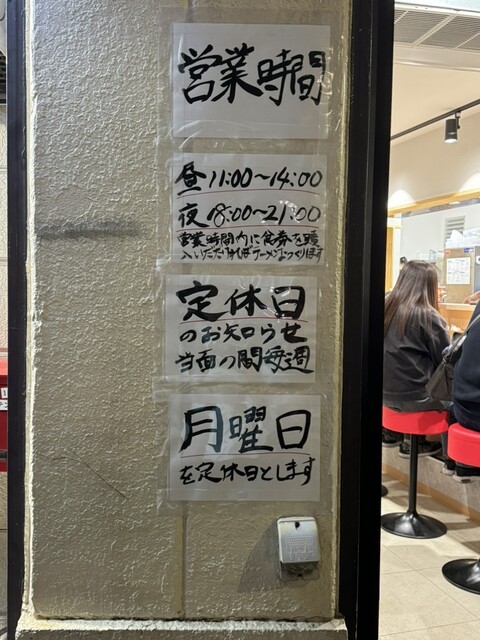 営業時間
昼 11:00〜14:00
夜 18:00〜21:00
営業時間内に食券を購
入いただければラーメンつくります
定休日
のお知らせ
当面の間毎週
月曜日
を定休日とします